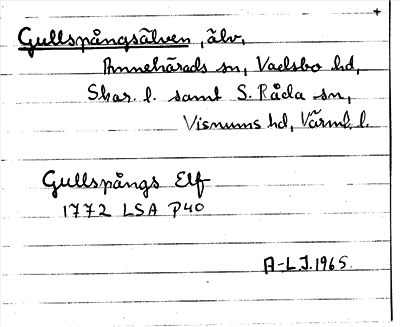 +
Gullspångsälven, älv,
Amnehärads sn, Vadsbo hd,
Skar. l. samt S. Råda sn,
Visnums hd, Värml. l.
Gullspångs Elf
1772 LSA P40
A-L.J. 1965.